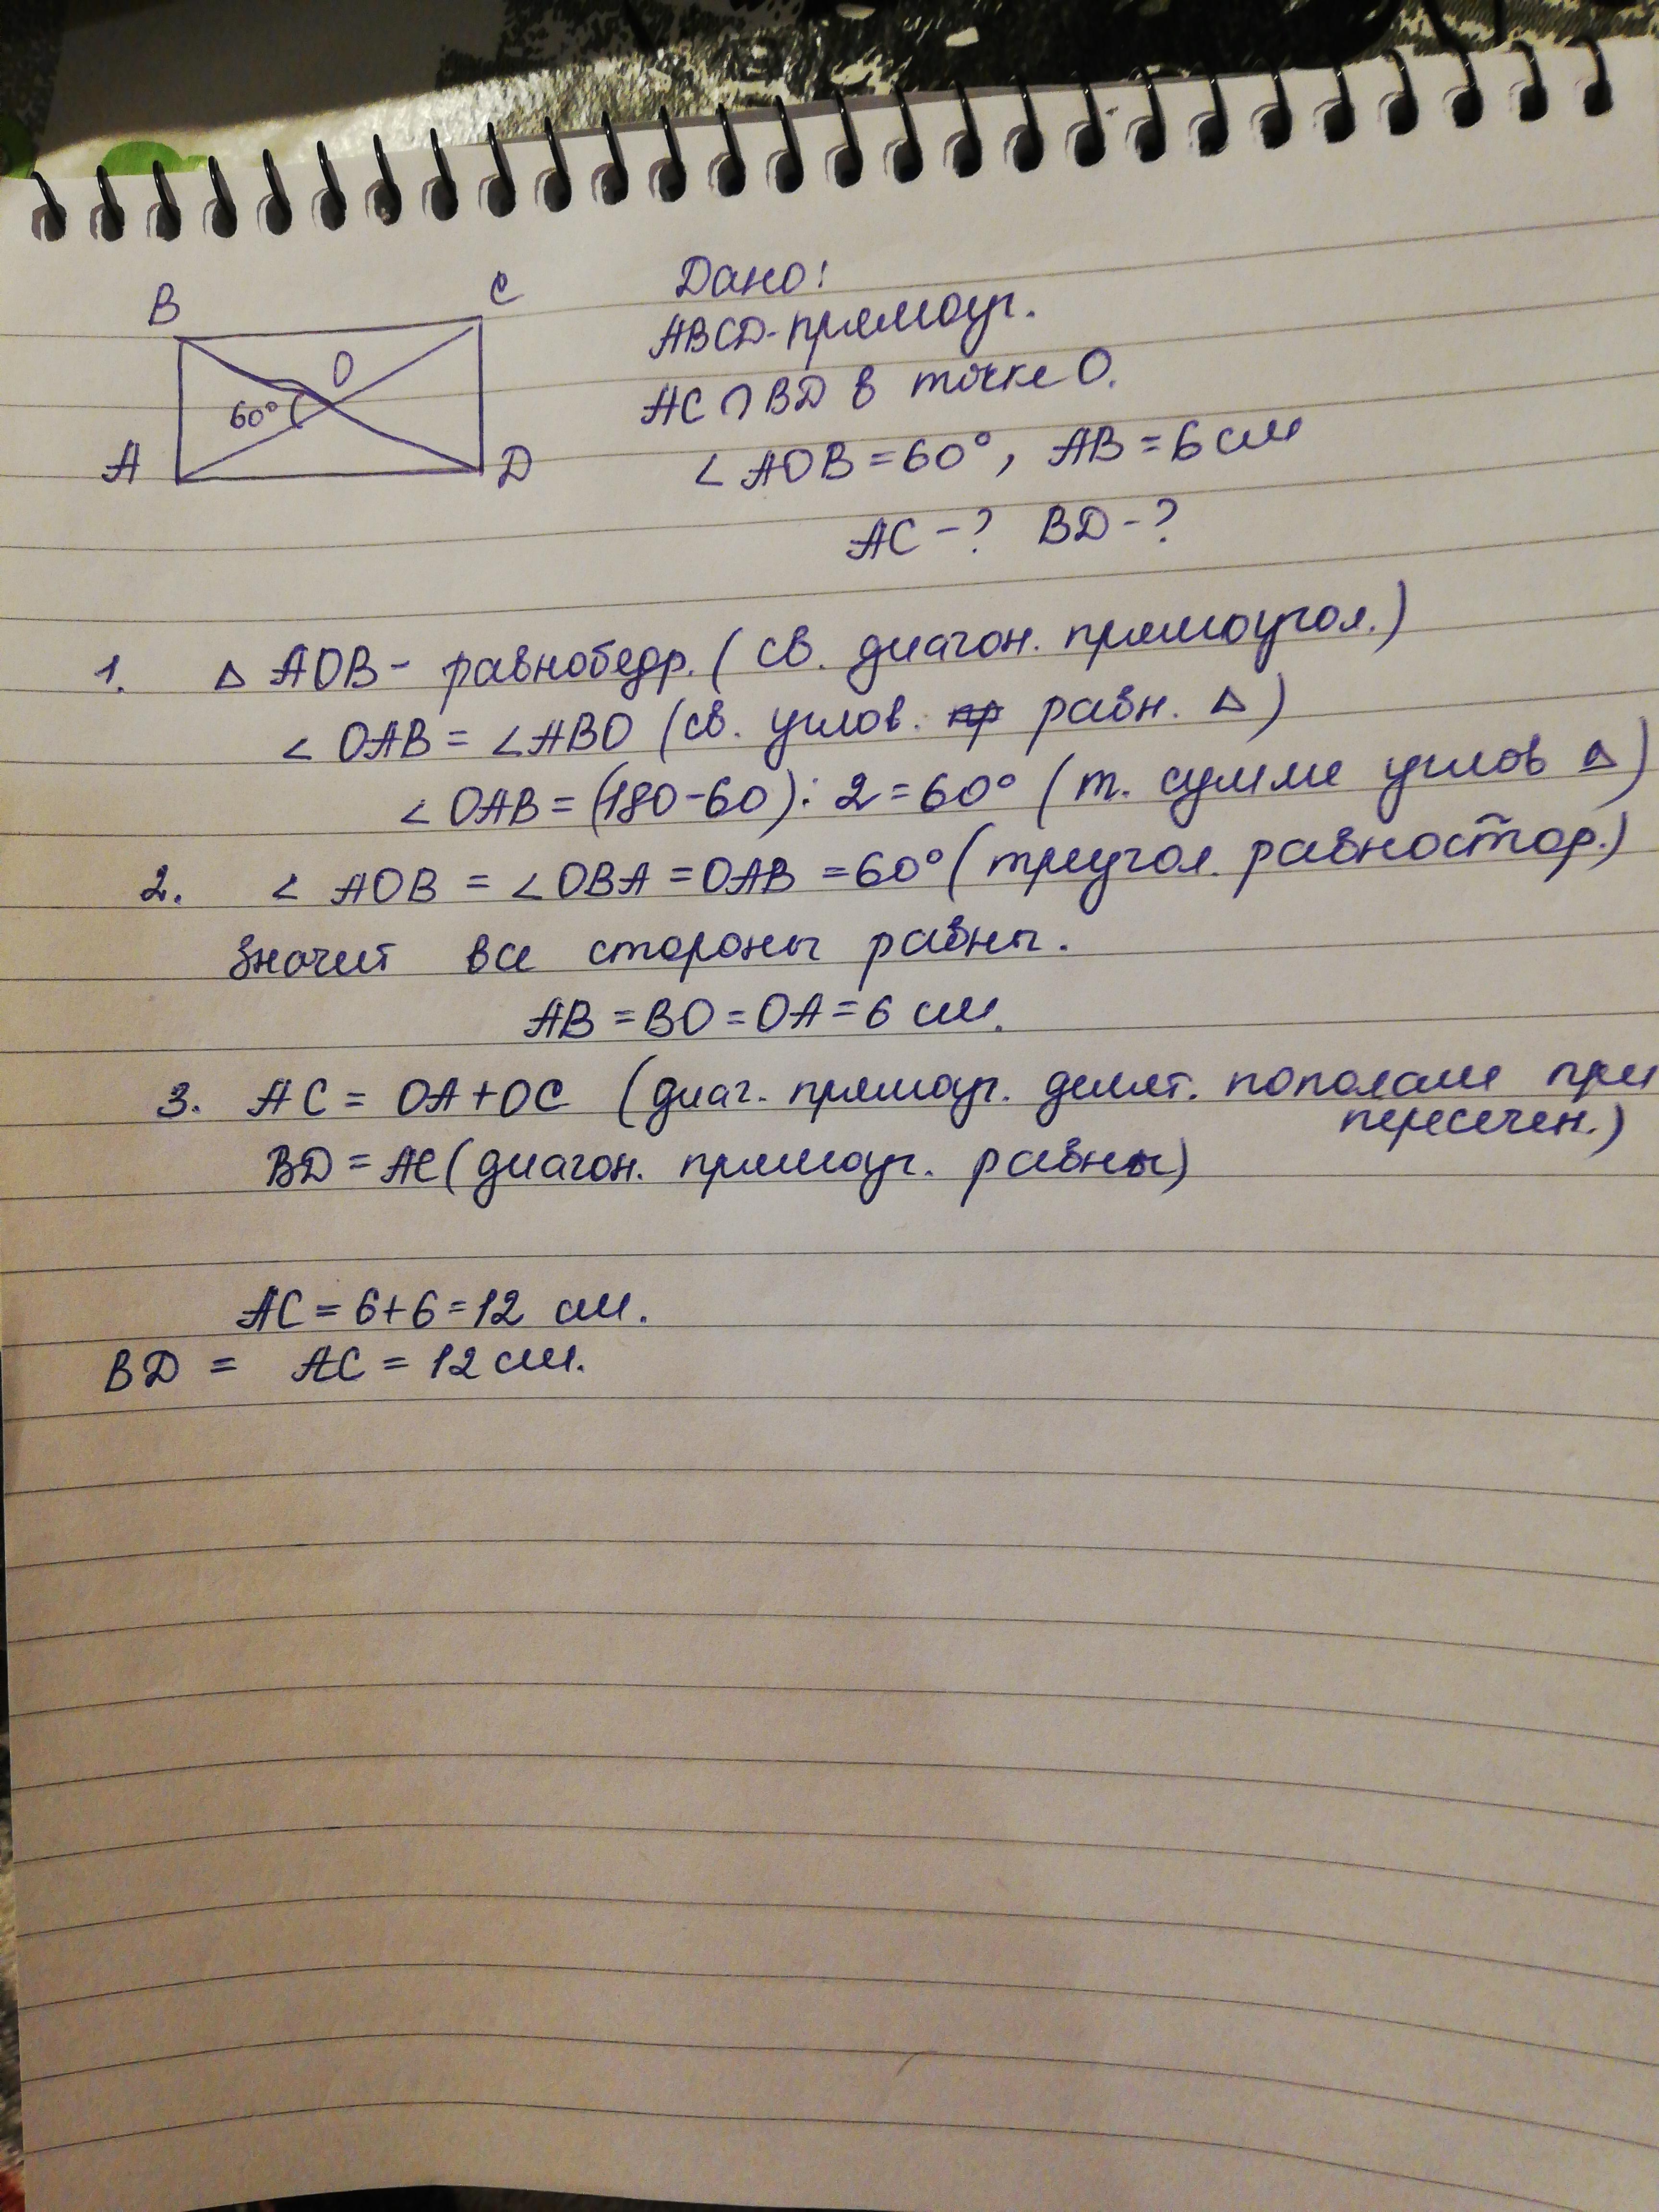 B
C
O
60°
A
D
Дано:
ABCD-прямоуг.
AC ∩ BD в точке O.
∠ AOB = 60°, AB = 6 см
AC - ? BD - ?
1. △ AOB - равнобедр. ( св. диагон. прямоугол.)
∠ OAB = ∠ABO (св. углов. пр равн. △)
∠ OAB = (180-60): 2 = 60° ( т. сумме углов △)
2. ∠ AOB = ∠OBA = OAB = 60° ( треугол. равностор.)
значит все стороны равны.
AB = BO = OA = 6 см.
3. AC = OA+OC (диаг. прямоуг. делят. пополам при
пересечен.)
BD = AC ( диагон. прямоуг. равны)
AC = 6+6 = 12 см.
BD = AC = 12 см.